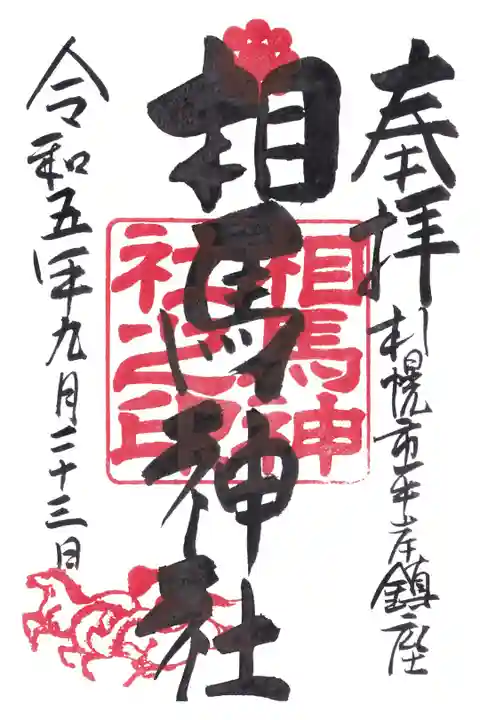 奉拝
札幌市平岸鎮座
相馬神社
相馬神社之印
令和五年九月二十三日